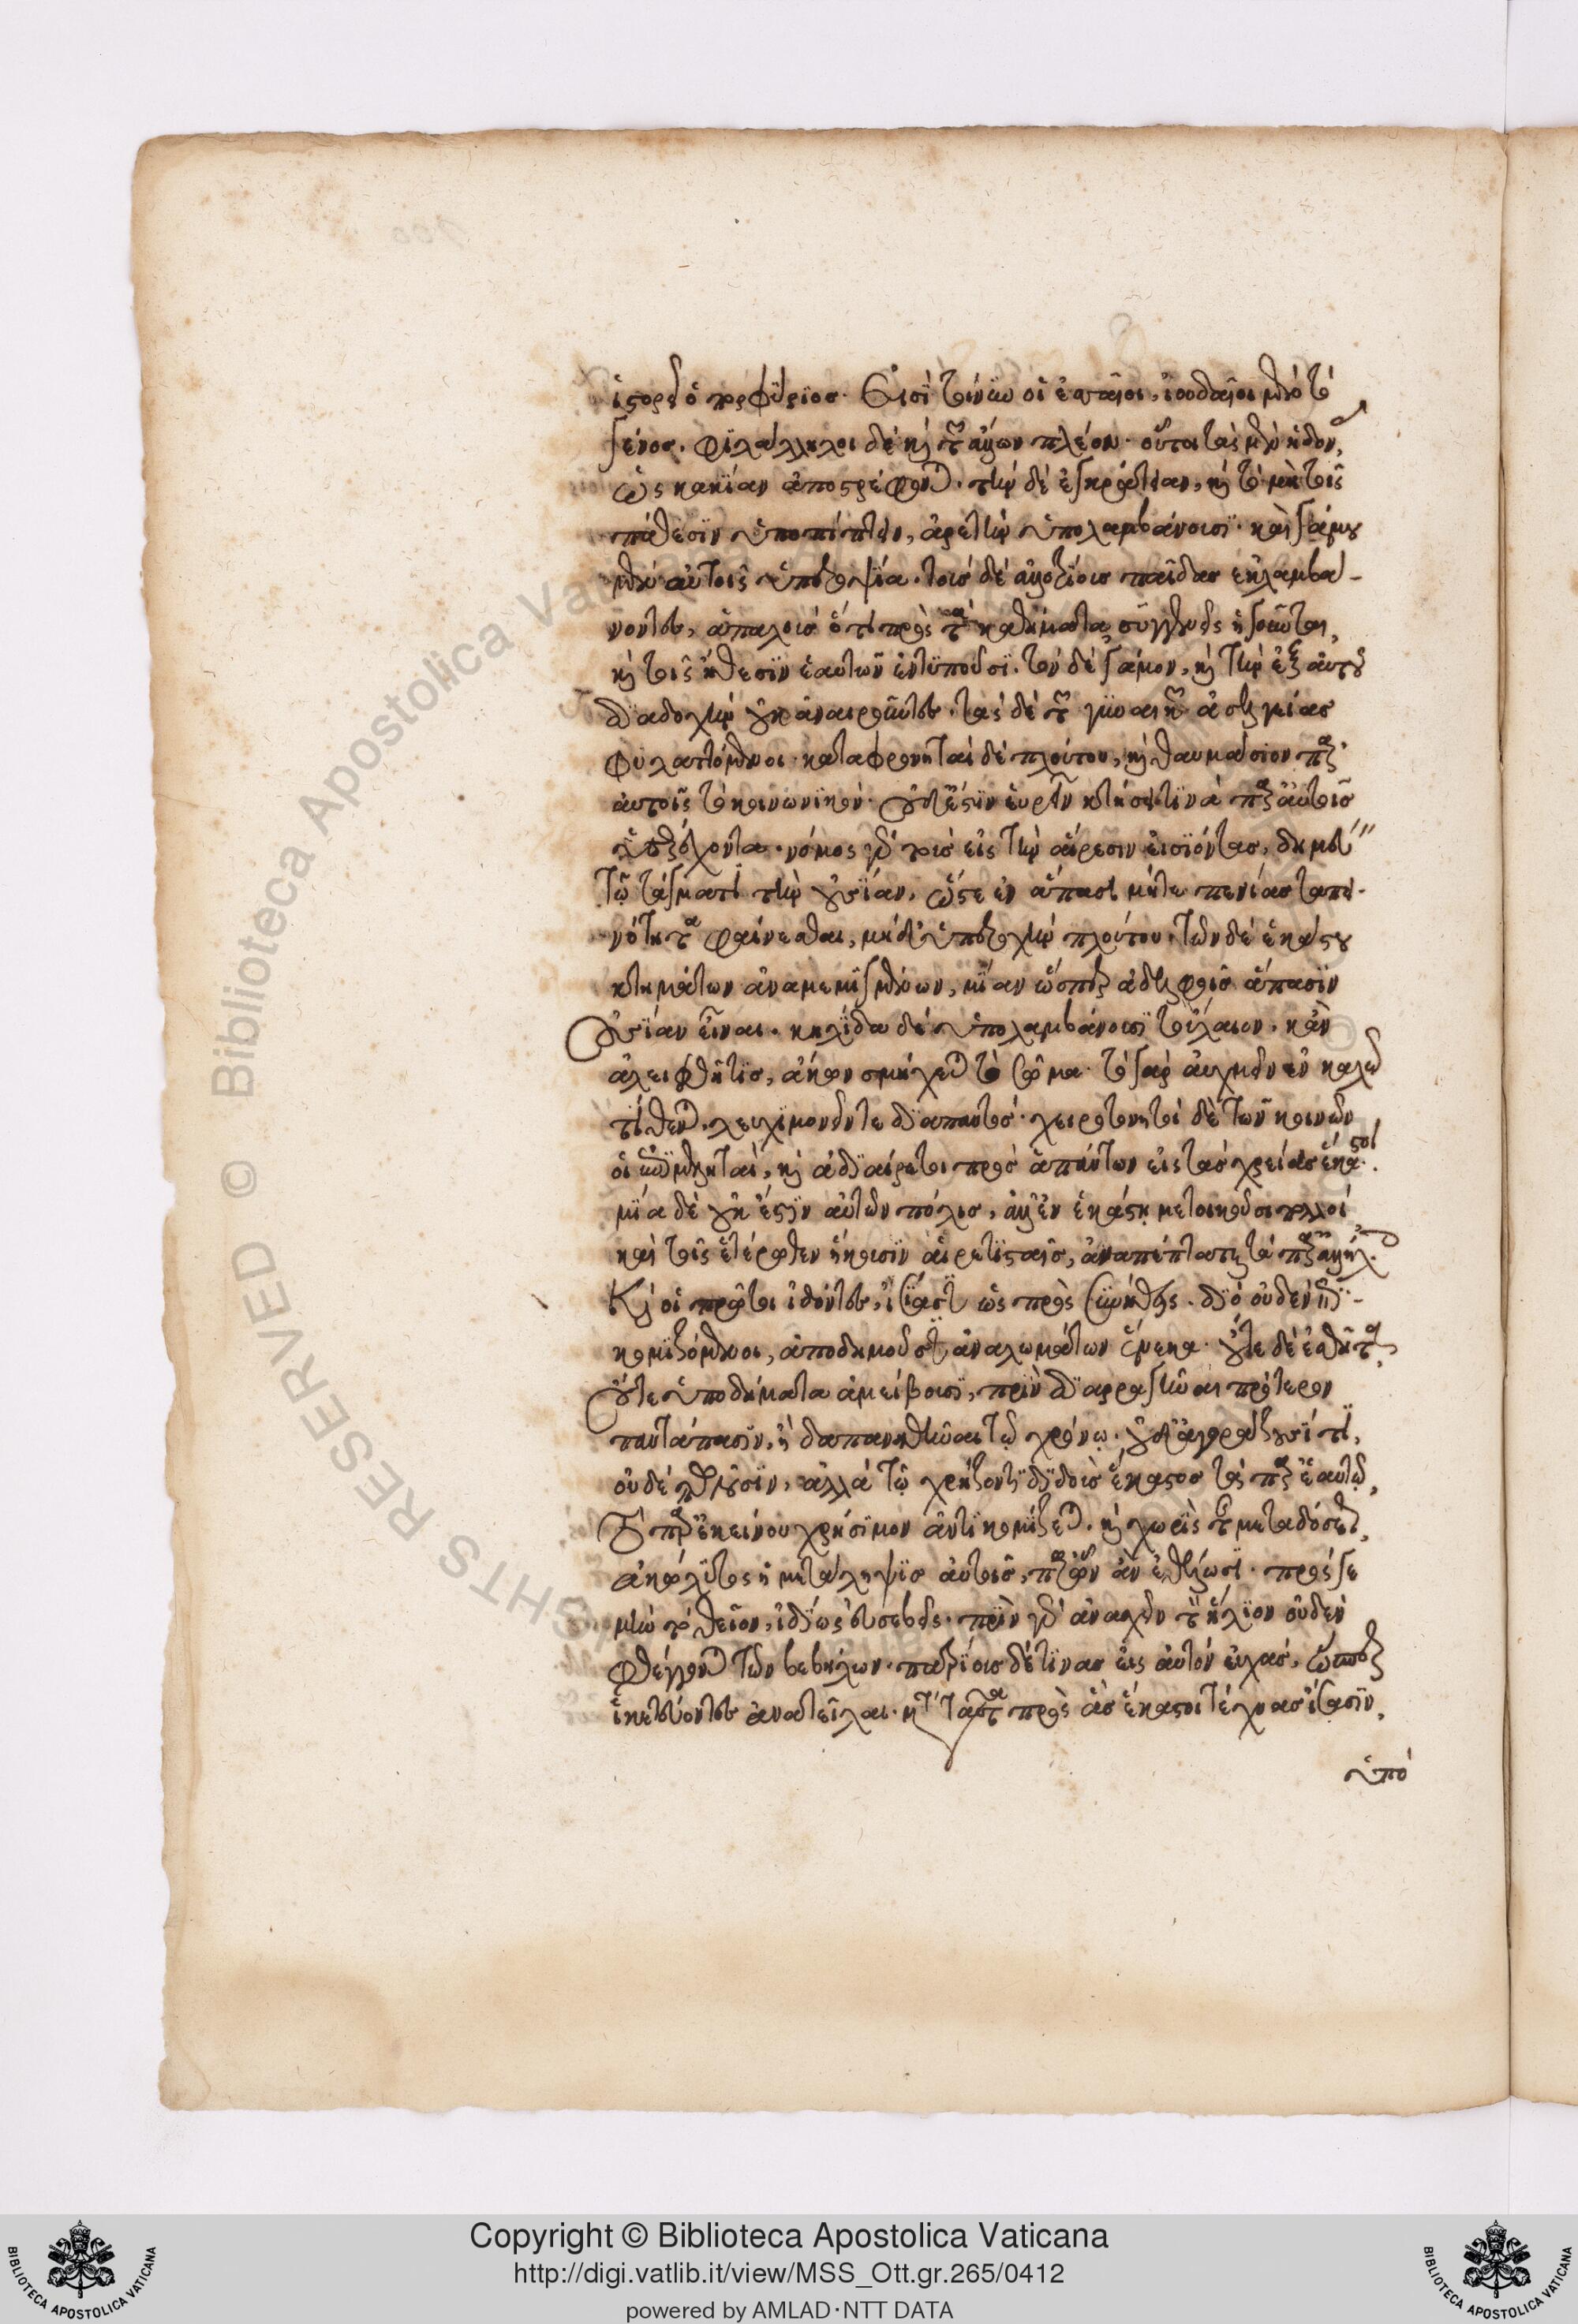 ἱστορεῖ ὁ πορφύριος. Εἰσὶ τοίνυν οἱ ἐσσαῖοι, ἰουδαῖοι μὲν τὸ
γένος. φιλάλληλοι δὲ καὶ τῶν ἄλλων πλέον. οὗτοι τὰς μὲν ἡδονὰς
ὡς κακίαν ἀποστρέφονται. τὴν δὲ ἐγκράτειαν, καὶ τὸ μὴ τοῖς
πάθεσιν ὑποπίπτειν, ἀρετὴν ὑπολαμβάνουσι. καὶ γάμου
μὲν αὐτοῖς ὑπεροψία. τοὺς δὲ ἀλλοτρίους παῖδας ἐκλαμβά-
νοντες, ἁπαλοὺς ἔτι πρὸς τὰ μαθήματα, συγγενεῖς ἡγοῦνται,
καὶ τοῖς ἤθεσιν ἑαυτῶν ἐντυποῦσι. τὸν δὲ γάμον, καὶ τὴν ἐξ αὐτοῦ
διαδοχὴν οὐκ ἀναιροῦντες. τὰς δὲ τῶν γυναικῶν ἀσελγείας
φυλαττόμενοι. καταφρονηταὶ δὲ πλούτου, καὶ θαυμάσιον παρ'
αὐτοῖς τὸ κοινωνικόν. οὐδ' ἔστιν εὑρεῖν κτήσει τινὰ παρ' αὐτοῖς
ὑπερέχοντα. νόμος γὰρ τοὺς εἰς τὴν αἵρεσιν εἰσιόντας, δημεύειν
τῷ τάγματι τὴν οὐσίαν, ὥστε ἐν ἅπασι μήτε πενίας ταπει-
νότητα φαίνεσθαι, μήθ' ὑπεροχὴν πλούτου. τῶν δὲ ἑκάστου
κτημάτων ἀναμεμιγμένων, μίαν ὥσπερ ἀδελφοῖς ἅπασιν
οὐσίαν εἶναι. κηλίδα δὲ ὑπολαμβάνουσι τοὔλαιον. κἂν
ἀλειφθῇ τις, ἄκων σμήχεται τὸ σῶμα. τὸ γὰρ αὐχμεῖν ἐν καλῷ
τίθενται. λευχειμονεῖν τε διαπαντός. χειροτονητοὶ δὲ τῶν κοινῶν
οἱ ἐπιμεληταί, καὶ ἀδιαίρετοι πρὸς ἁπάντων εἰς τὰς χρείας ἕκαστοι.
μία δὲ οὐκ ἔστιν αὐτῶν πόλις, ἀλλ' ἐν ἑκάστῃ μετοικοῦσι πολλοί
καὶ τοῖς ἑτέρωθεν ἥκουσιν αἱρετισταῖς, ἀναπέπταται τὰ παρ' ἀλλήλοις.
Καὶ οἱ πρῶτοι ἰδόντες, εἰσίασιν ὡς πρὸς συνήθεις. διὸ οὐδὲν ἐπι-
κομιζόμενοι, ἀποδημοῦσιν ἀναλωμάτων ἕνεκα. οὔτε δὲ ἐσθῆτα,
οὔτε ὑποδήματα ἀμείβουσι, πρὶν διαρραγῆναι πρότερον
παντάπασιν, ἢ δαπανηθῆναι τῷ χρόνῳ. οὐδ' ἀγοράζουσί τι,
οὐδὲ πωλοῦσιν, ἀλλὰ τῷ χρῄζοντι διδοὺς ἕκαστος τὰ παρ' ἑαυτῷ,
τὸ παρ' ἐκείνου χρήσιμον ἀντικομίζεται. καὶ χωρὶς τῆς μεταδόσεως,
ἀκώλυτος ἡ μετάληψις αὐτοῖς, παρ' ὧν ἂν ἐθέλωσι. πρός γε
μὴν τὸ θεῖον, ἰδίως εὐσεβεῖς. πρὶν γὰρ ἀνασχεῖν τὸν ἥλιον οὐδὲν
φθέγγονται τῶν βεβήλων. πατρίους δέ τινας εἰς αὐτὸν εὐχάς, ὥσπερ
ἱκετεύοντες ἀνατεῖλαι. μετὰ ταῦτα πρὸς ἃς ἕκαστοι τέχνας ἴσασιν,
ὑπό
Copyright © Biblioteca Apostolica Vaticana
http://digi.vatlib.it/view/MSS_Ott.gr.265/0412
powered by AMLAD·NTT DATA